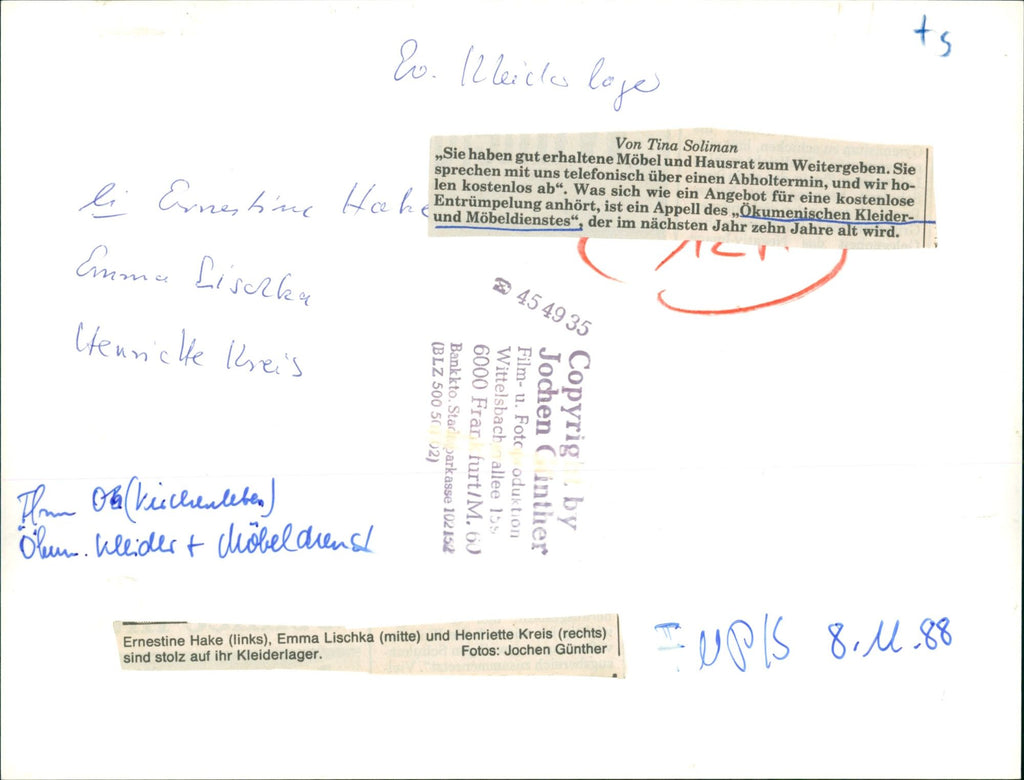 ts
Ev. Kleiderlager
Von Tina Soliman
„Sie haben gut erhaltene Möbel und Hausrat zum Weitergeben. Sie
sprechen mit uns telefonisch über einen Abholtermin, und wir ho-
len kostenlos ab“. Was sich wie ein Angebot für eine kostenlose
Entrümpelung anhört, ist ein Appell des „Ökumenischen Kleider-
und Möbeldienstes“, der im nächsten Jahr zehn Jahre alt wird.
li Ernestine Hake
Emma Lischka
Henriette Kreis
☎ 454935
Copyright by
Jochen Günther
Film- u. Fotoproduktion
Wittelsbacherallee 155
6000 Frankfurt/M. 60
Bankkto. Stadtsparkasse 102152
(BLZ 500 501 02)
(Kirchenleben)
Ökum. Kleider + Möbeldienst
Ernestine Hake (links), Emma Lischka (mitte) und Henriette Kreis (rechts)
sind stolz auf ihr Kleiderlager.
Fotos: Jochen Günther
8.11.88